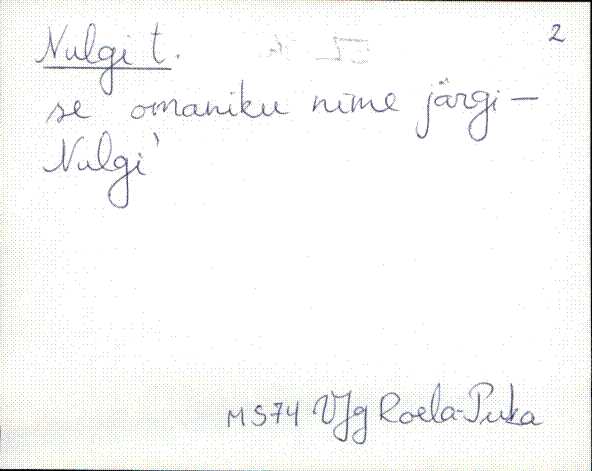 2
Nulgi t.
se omaniku nime järgi –
Nulgi'
MS74 VJg Roela-Puka